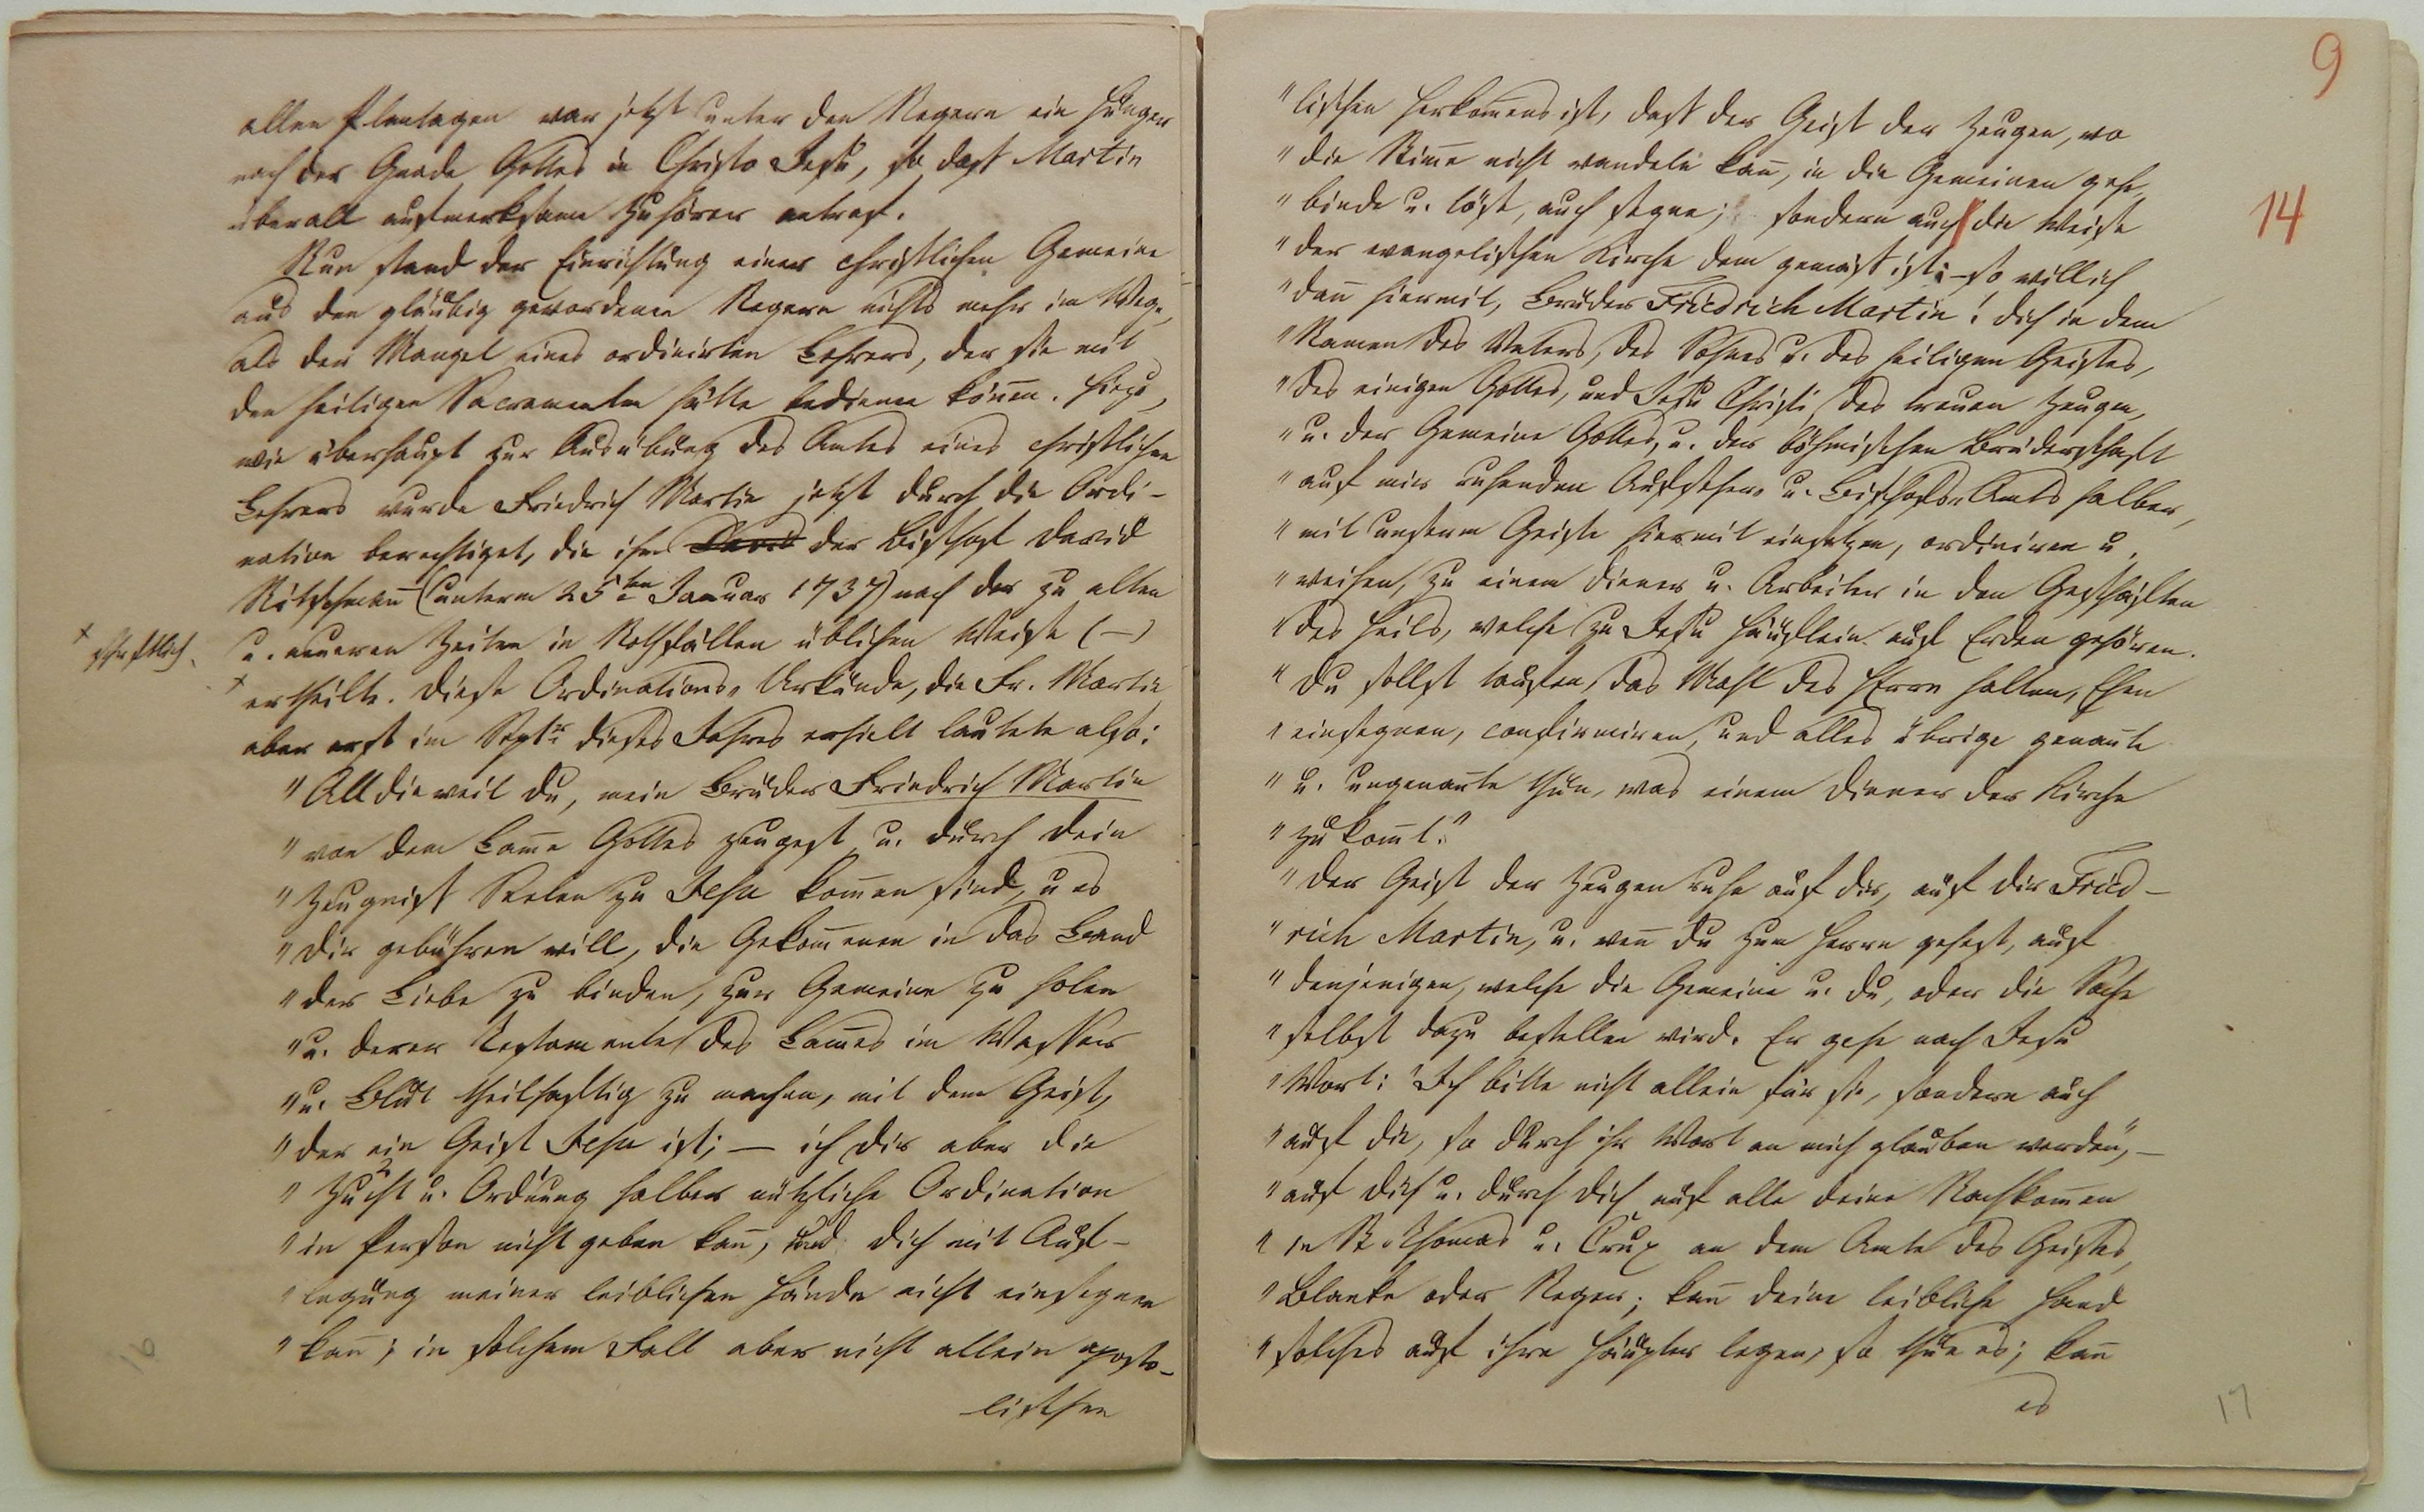 allen Plantagen war jetzt unter den Negern ein Hunger
nach der Gnade Gottes in Christo Jesu, so daß Martin
überall aufmerksame Zuhörer antraf.
Nun stand der Einrichtung einer christlichen Gemeine
aus den gläubig gewordenen Negern nichts mehr im Wege,
als der Mangel eines ordinirten Lehrers, der sie mit
den heiligen Sacramenten hätte bedienen können. Hiezu,
wie überhaupt zur Ausübung des Amtes eines christlichen
Lehrers wurde Friedrich Martin jetzt durch die Ordi-
nation berechtiget, die ihm David der Bischof David
Nitschmann (unterm 25ten Januar 1737) nach der zu alten
u. neueren Zeiten in Nothfällen üblichen Weise (—)
+ schriftlich.
+ ertheilte. Diese Ordinations-Urkunde, die Fr. Martin
aber erst im Septr dieses Jahres erhielt lautete also:
"Alldieweil du, mein Bruder Friedrich Martin
"von dem Lam̄e Gottes zeugest u. durch dein
"Zeugniß Seelen zu Jesu kom̄en sind, u es
"dir gebühren will, die Gekom̄enen in das Band
"der Liebe zu binden, zur Gemeine zu holen
"u. derer Testamente des Lam̄es im Wasser
"u. Blut theilhaftig zu machen, mit dem Geist,
"der ein Geist Jesu ist; — ich dir aber die
"Zucht u. Ordnung halber nützliche Ordination
"in Person nicht geben kan̄, und dich mit Auf-
"legung meiner leiblichen Hände nicht einsegnen
"kan̄; in solchem Fall aber nicht allein aposto-
lischen
16
9
14
"lischen Herkom̄ens ist, daß der Geist der Zeugen, wo
"die Stim̄e nicht wandeln kan̄, in die Gemeinen gehe,
"binde u. löse, auch segne; sondern auch die Weise
"der evangelischen Kirche dem gemäß ist: — so will ich
"dan̄ hiermit, Bruder Friedrich Martin! dich in dem
"Namen des Vaters, des Sohnes u. des heiligen Geistes,
"des einigen Gottes, und Jesu Christi des treuen Zeugen,
"u. der Gemeine Gottes, u. der böhmischen Brüderschaft
"auf mir ruhenden Aufseher- u. Bischofs-Amts halber,
"mit unserm Geiste hiermit einsetzen, ordiniren u.
"weihen, zu einem Diener u. Arbeiter in den Geschäften
"des Heils, welche zu Jesu Häuflein auf Erden gehören.
"Du sollst taufen, das Mahl des HErrn halten, Ehen
"einsegnen, confirmiren, und alles übrige genan̄te
"u. ungenan̄te thun, was einem Diener der Kirche
"zukom̄t."
"Der Geist der Zeugen ruhe auf dir, auf dir Fried-
"rich Martin, u. wen̄ du zum Herrn gehest, auf
"denjenigen, welche die Gemeine u. du, oder die Sache
"selbst dazu bestellen wird. Er gehe nach Jesu
"Wort: "Ich bitte nicht allein für sie, sondern auch
"auf die, so durch ihr Wort an mich glauben werden", —
"auf dich u. durch dich auf alle deine Nachkom̄en
"in St. Thomas u. Crux an dem Amte des Geistes,
"Blanke oder Neger; kan̄ deine leibliche Hand
"solches auf ihre Häupter legen, so thue es; kan̄
es
17